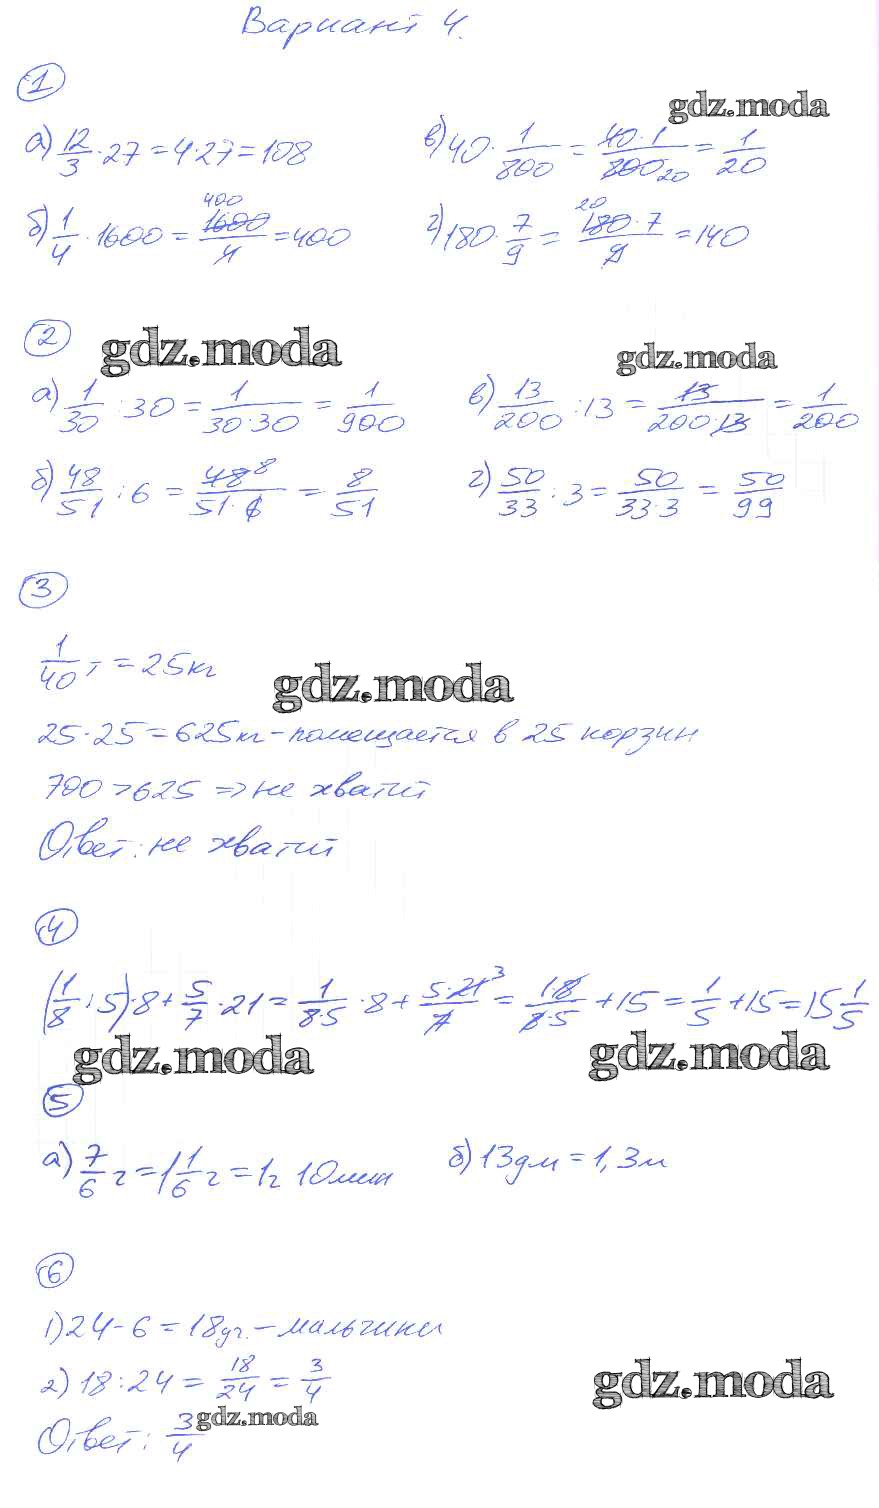 Вариант 4.
1
gdz.moda
а) 12/3 · 27 = 4·27 = 108 в) 40 · 1/800 = 40·1/800 20 = 1/20
б) 1/4 · 1600 = 400 1600/4 = 400 г) 180 · 7/9 = 20 180·7/9 = 140
2
gdz.moda gdz.moda
а) 1/30 : 30 = 1/30·30 = 1/900 в) 13/200 : 13 = 13/200·13 = 1/200
б) 48/51 : 6 = 48 8/51·6 = 8/51 г) 50/33 : 3 = 50/33·3 = 50/99
3
1/40 т = 25кг
gdz.moda
25·25 = 625кг - помещается в 25 корзин
700 > 625 => не хватит
Ответ: не хватит
4
(1/8 : 5)·8 + 5/7 · 21 = 1/8·5 · 8 + 5·21 3/7 = 1·8/8·5 + 15 = 1/5 + 15 = 15 1/5
gdz.moda gdz.moda
5
а) 7/6 ч = 1 1/6 ч = 1ч 10мин б) 13дм = 1,3м
6
1) 24 - 6 = 18уч. - мальчики
2) 18 : 24 = 18/24 = 3/4
gdz.moda
Ответ: 3/4
gdz.moda